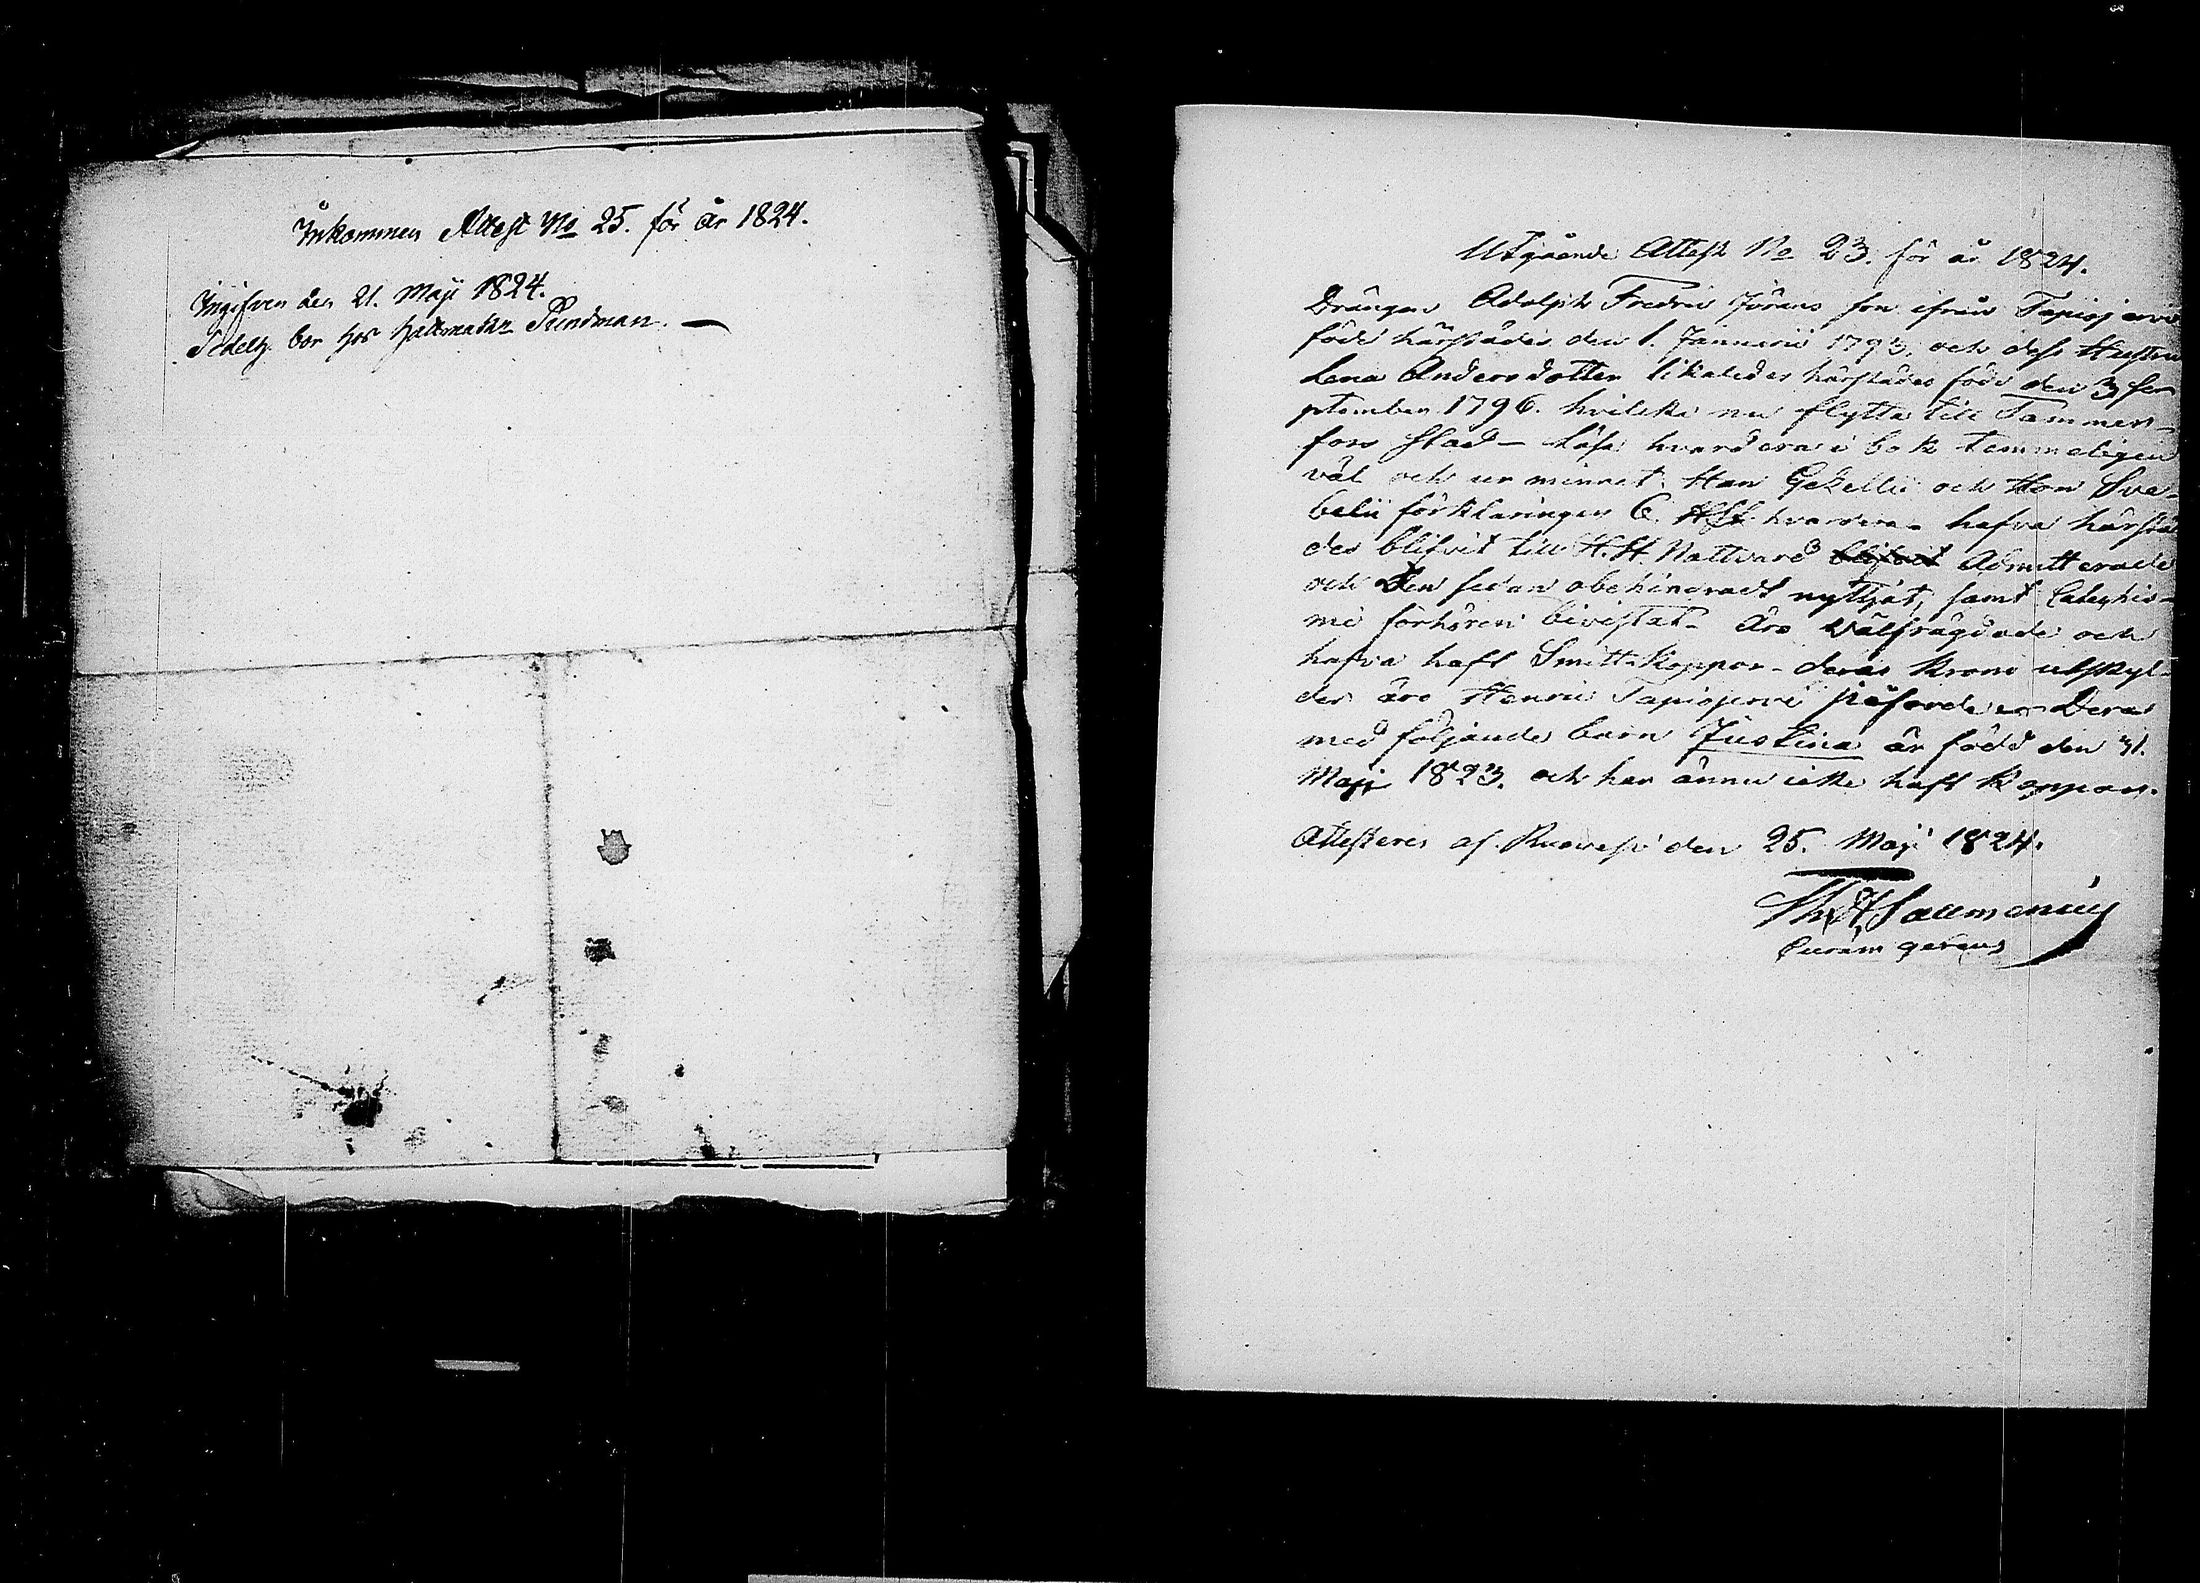 Inkommen Attest No 25. för år 1824.
Ingifven den 21. Maji 1824.
bor hos Hattmakar Sundman. —
Utgående Attest No 23. för år 1824.
Drängen Adolph Fredric Jörans son ifrån Tapiojervi
född härstädes den 1. Januarii 1793, och dess Hustru
Lena Andersdotter likaledes härstädes född den 3 Se-
ptember 1796. hvilka nu flytta till Tammer-
fors Stad — läsa hvardera i bok temmeligen
väl och ur minnet. Han Gezellii och Hon Sve-
belii förklaringen 6. HSt. hvardera - hafva härstä
des blifvit till H. H. Nattvard blifvit Admitterade
och Den sedan obehindradt nyttjat, samt Catechis-
mi förhören bivistat - Äro Wälfrägdade och
hafva haft Smitt-Koppor - deras Krono utskyl-
der äro Henric Tapiojervi påförde - Deras
med följande barn Justina är född den 31.
Maji 1823. och har ännu icke haft Koppor.
Attesteres af Ruovesi den 25. Maji 1824.
Th. H. Sallmenius
Curam gerens